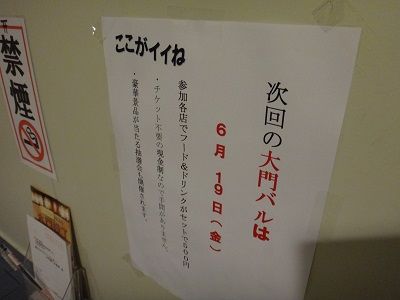 次回の大門バルは
6月19日(金)
ここがイイね
参加各店でフード&ドリンクがセットで500円
・チケット不要の現金制なので手間がありません。
・豪華景品が当たる抽選会も開催されます。
禁煙